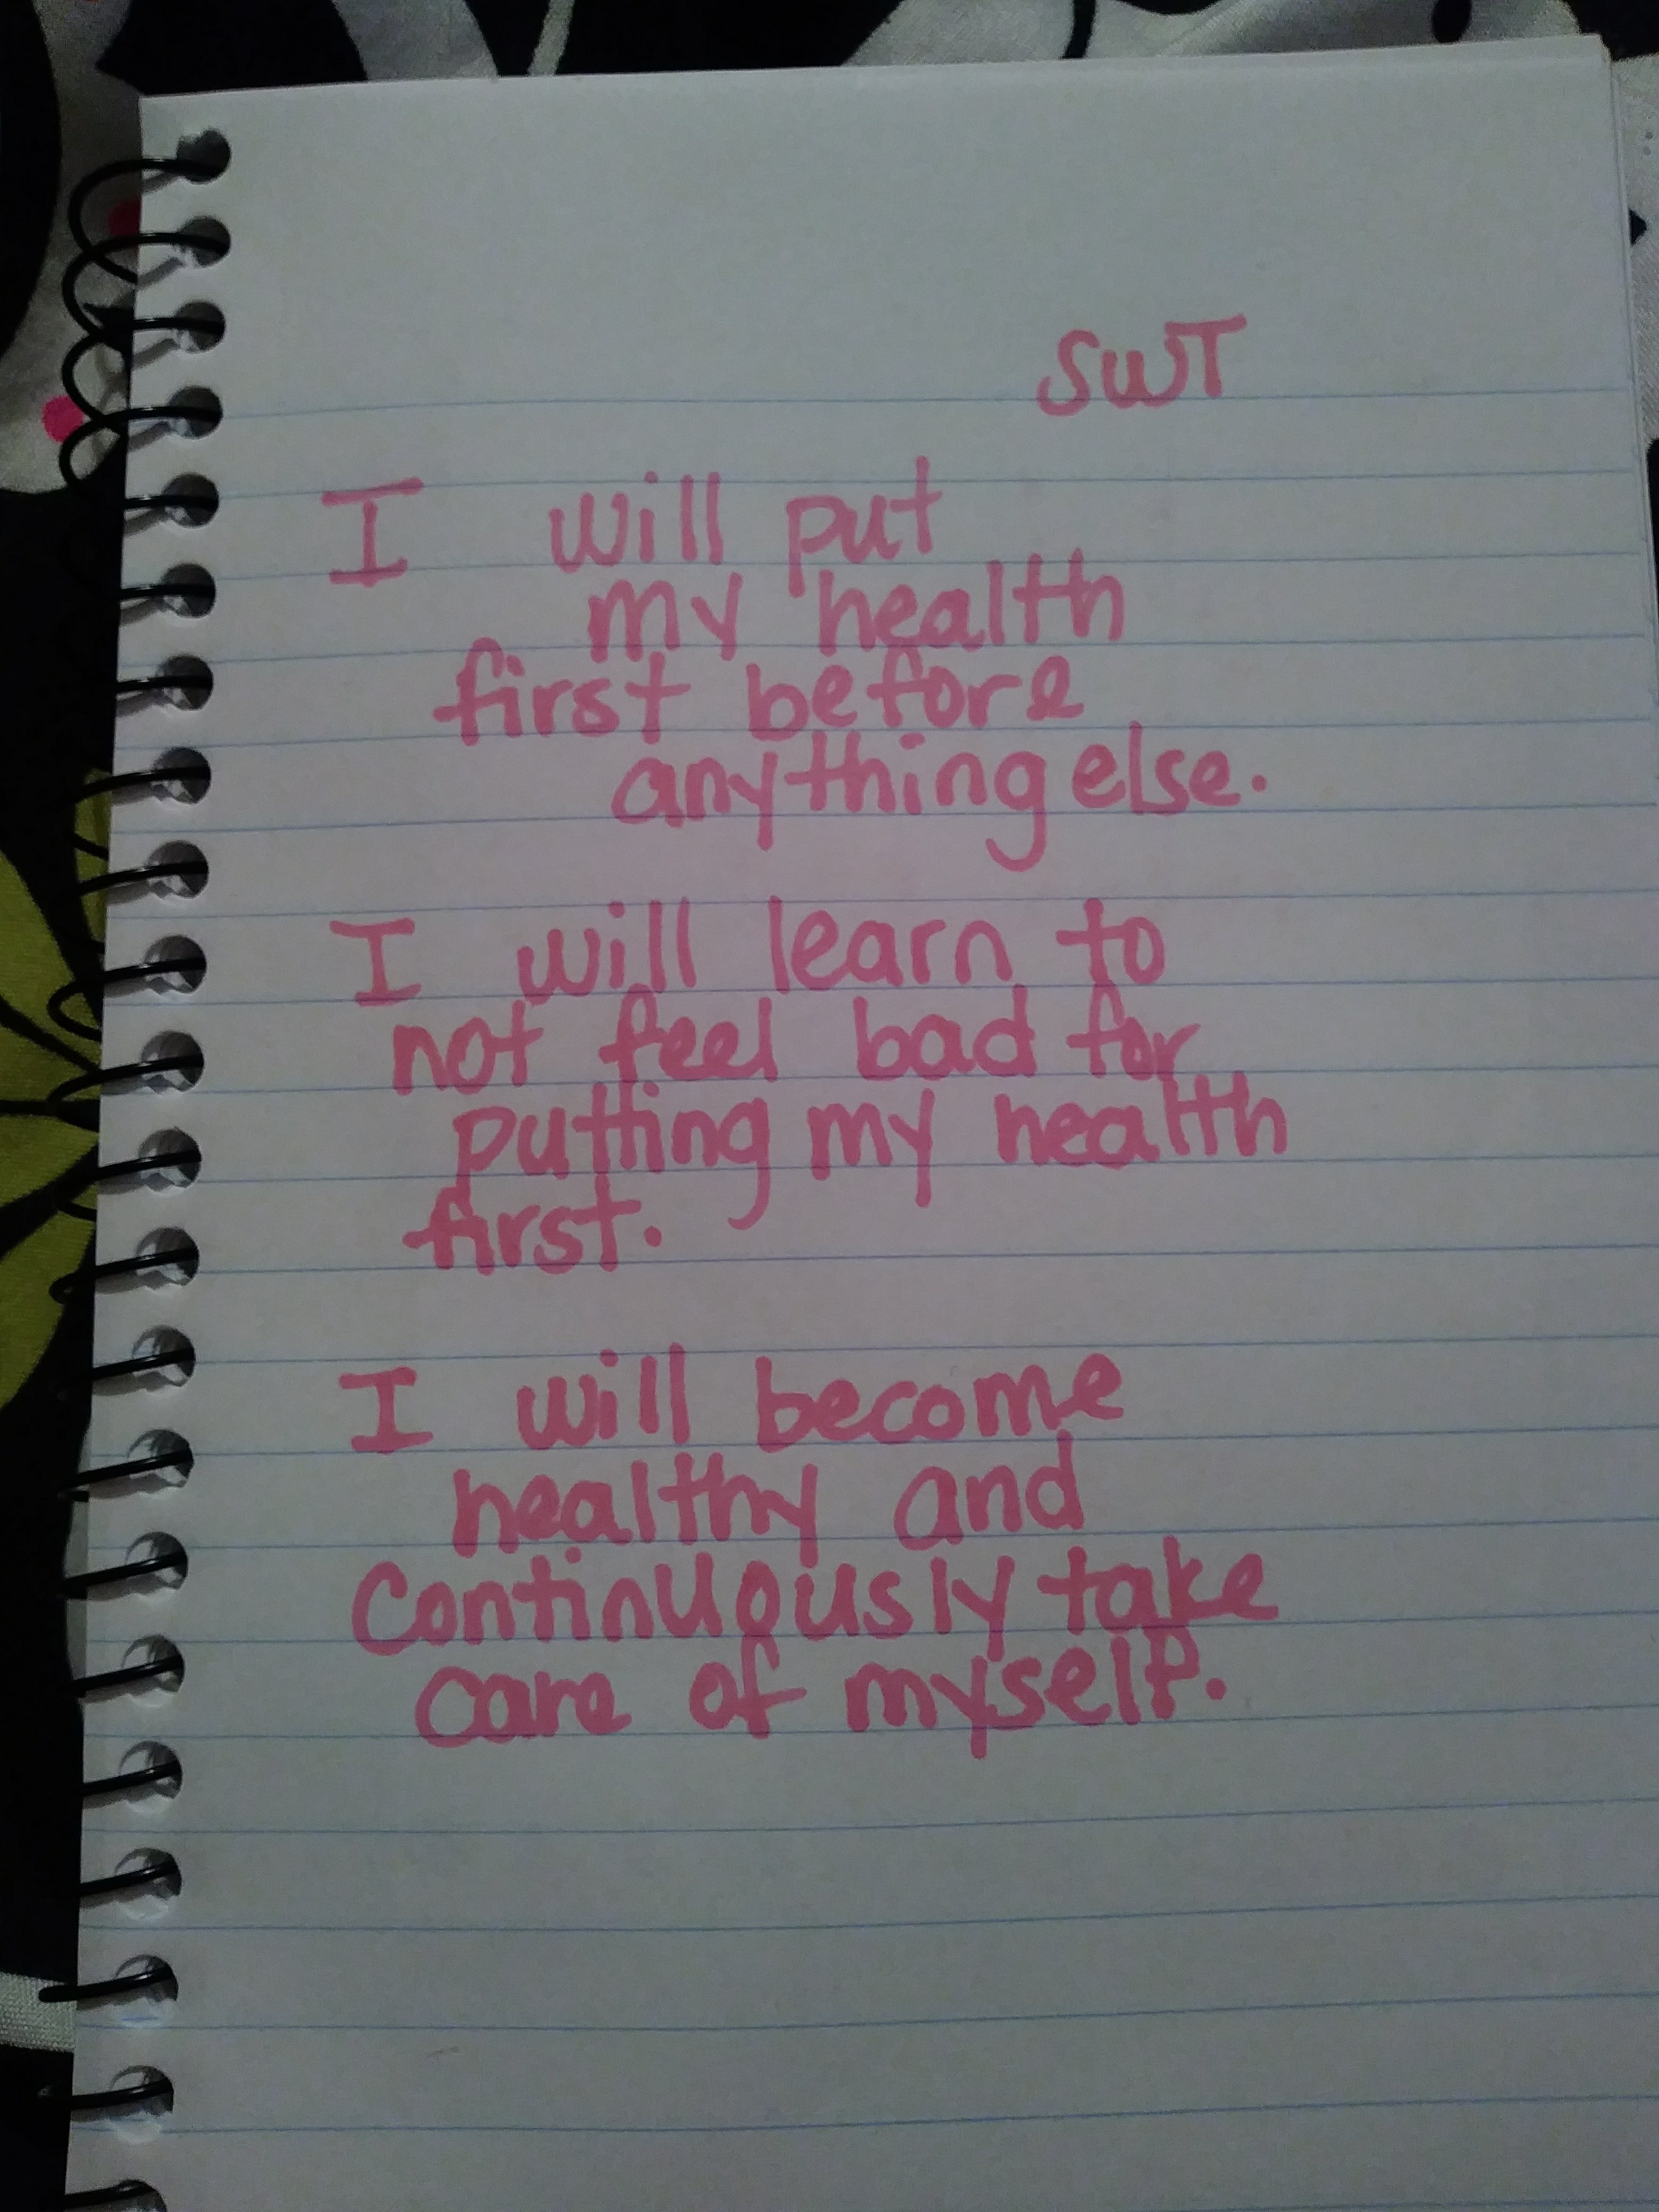 SWT
I will put
my health
first before
anything else.
I will learn to
not feel bad for
putting my health
first.
I will become
healthy and
Continuously take
care of myself.